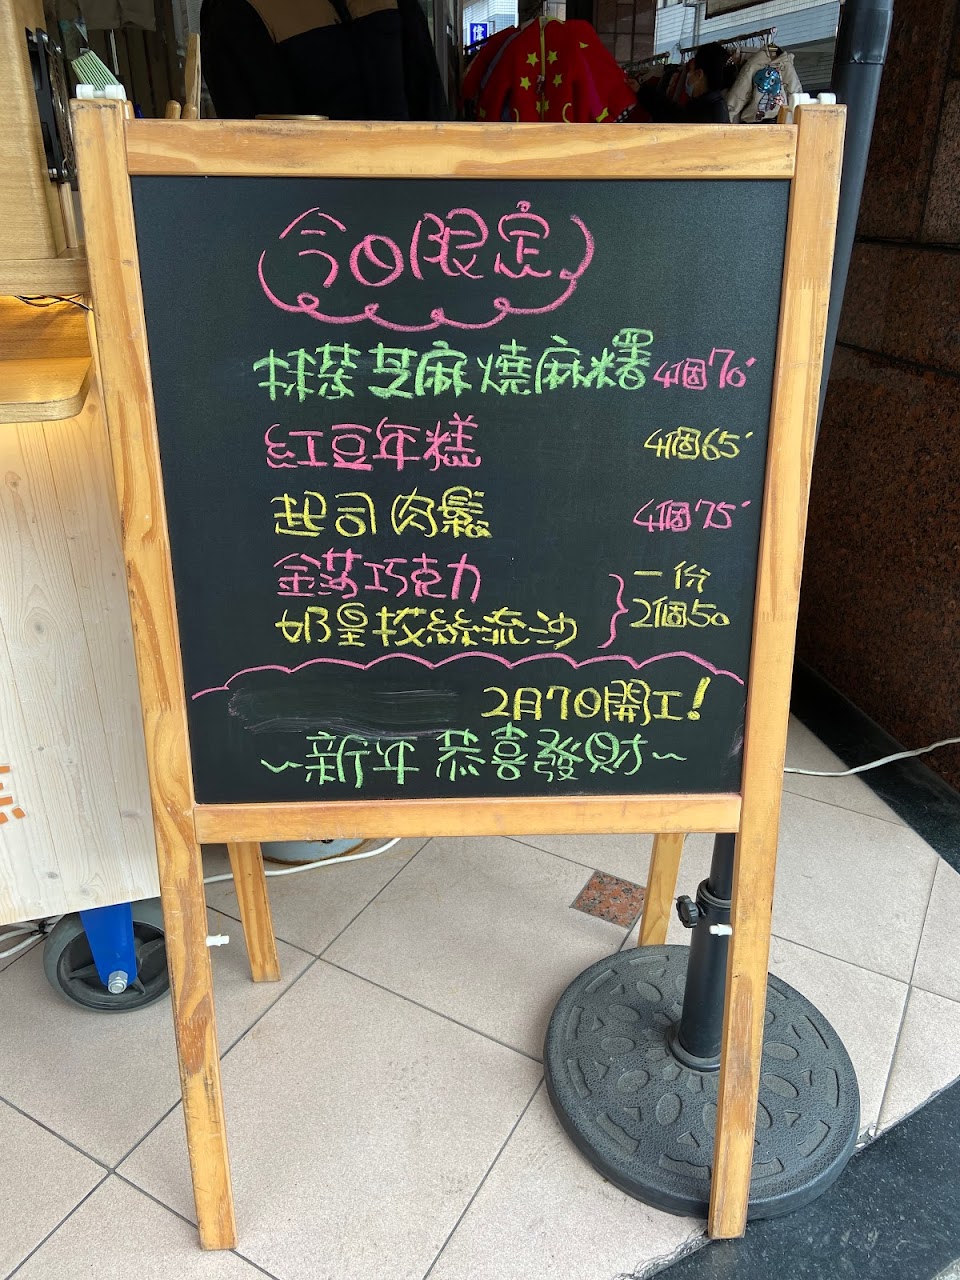 今日限定
抹茶芝麻燒麻糬 4個70
紅豆年糕 4個65
起司肉鬆 4個75
金莎巧克力
奶皇拔絲流沙
一份
2個50
2月7日開工!
~新年恭喜發財~